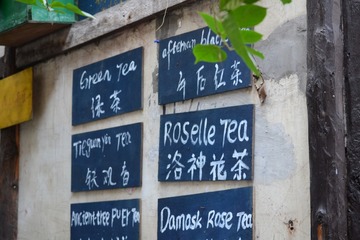 Green Tea
绿茶
afternan black
午后红茶
Tieguanyin Tea
铁观音
ROSElle TEA
洛神花茶
Ancient-tree PuEr Tea
Damask Rose Tea